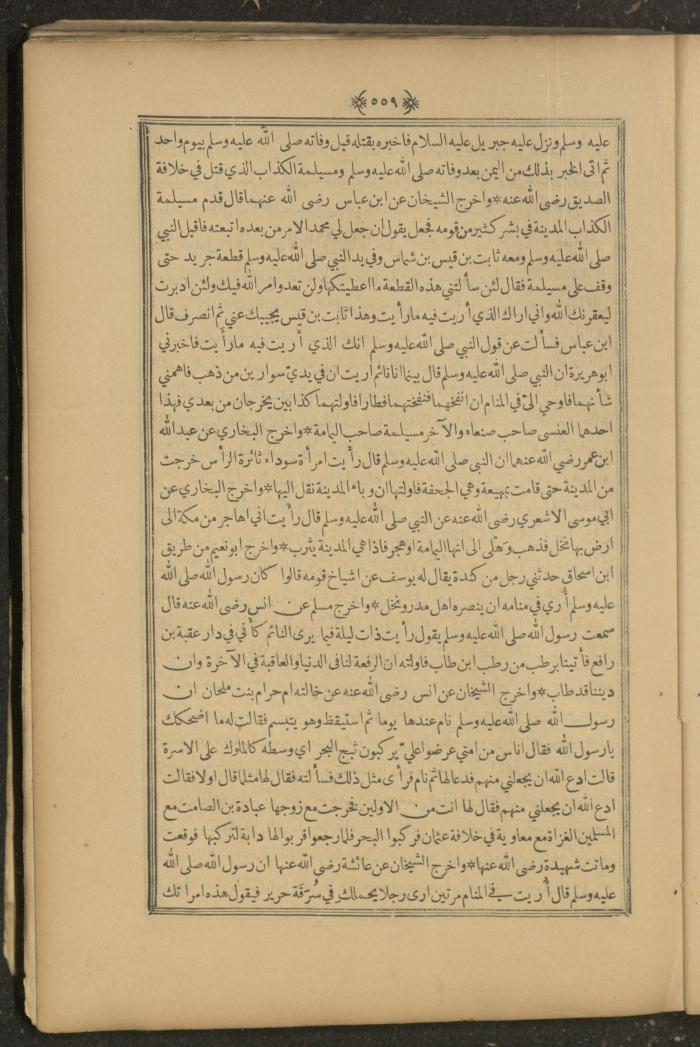 ٥٥٩
عليه وسلم ونزل عليه جبريل عليه السلام فاخبره بقتله قبل وفاته صلى الله عليه وسلم بيوم واحد
ثم اتى الخبر بذلك من اليمن بعد وفاته صلى الله عليه وسلم ومسيلمة الكذاب الذي قتل في خلافة
الصديق رضي الله عنه * واخرج الشيخان عن ابن عباس رضي الله عنهما قال قدم مسيلمة
الكذاب المدينة في بشر كثير من قومه فجعل يقول ان جعل لي محمد الامر من بعده اتبعته فاقبل النبي
صلى الله عليه وسلم ومعه ثابت بن قيس بن شماس وفي يد النبي صلى الله عليه وسلم قطعة جريد حتى
وقف على مسيلمة فقال لئن سألتني هذه القطعة ما اعطيتكها ولن تعدو امر الله فيك ولئن ادبرت
ليعقرنك الله واني اراك الذي أريت فيه ما رأيت وهذا ثابت بن قيس يجيبك عني ثم انصرف قال
ابن عباس فسألت عن قول النبي صلى الله عليه وسلم انك الذي أريت فيه ما رأيت فاخبرني
ابو هريرة ان النبي صلى الله عليه وسلم قال بينما انا نائم اريت ان في يديّ سوارين من ذهب فاهمني
شأنهما فاوحي اليّ في المنام ان انفخهما فنفختهما فطارا فاولتهما كذابين يخرجان من بعدي فهذا
احدهما العنسى صاحب صنعاء والآخر مسيلمة صاحب اليمامة * واخرج البخاري عن عبد الله
ابن عمر رضي الله عنهما ان النبي صلى الله عليه وسلم قال رأيت امرأة سوداء ثائرة الرأس خرجت
من المدينة حتى قامت بمهيعة وهي الجحفة فاولتها ان وباء المدينة نقل اليها * واخرج البخاري عن
ابي موسى الاشعري رضي الله عنه عن النبي صلى الله عليه وسلم قال رأيت اني اهاجر من مكة الى
ارض بها نخل فذهب وَهَلى الى انها اليمامة او هجر فاذا هي المدينة يثرب * واخرج ابو نعيم من طريق
ابن اسحاق حدثني رجل من كندة يقال له يوسف عن اشياخ قومه قالوا كان رسول الله صلى الله
عليه وسلم أُري في منامه ان ينصره اهل مدر ونخل * واخرج مسلم عن انس رضي الله عنه قال
سمعت رسول الله صلى الله عليه وسلم يقول رأيت ذات ليلة فيما يرى النائم كأني في دار عقبة بن
رافع فأتينا برطب من رطب ابن طاب فاولته ان الرفعة لنا في الدنيا والعاقبة في الآخرة وان
ديننا قد طاب * واخرج الشيخان عن انس رضي الله عنه عن خالته ام حرام بنت ملحان ان
رسول الله صلى الله عليه وسلم نام عندها يوما ثم استيقظ وهو يتبسم فقالت له ما اضحكك
يا رسول الله فقال اناس من امتي عرضوا عليّ يركبون ثبج البحر اي وسطه كالملوك على الاسرة
قالت ادع الله ان يجعلني منهم فدعا لها ثم نام فرأى مثل ذلك فسألته فقال لها مثلما قال اولا فقالت
ادع الله ان يجعلني منهم فقال لها انت من الاولين فخرجت مع زوجها عبادة بن الصامت مع
المسلمين الغزاة مع معاوية في خلافة عثمان فركبوا البحر فلما رجعوا قربوا لها دابة لتركبها فوقعت
وماتت شهيدة رضي الله عنها * واخرج الشيخان عن عائشة رضي الله عنها ان رسول الله صلى الله
عليه وسلم قال أُريت في المنام مرتين ارى رجلا يحملك في سَرَقَة حرير فيقول هذه امراتك